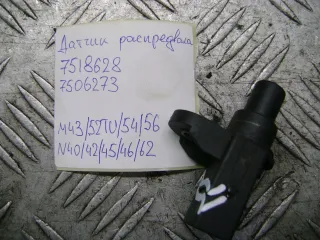 Датчик распредвала
7518628
7506273
M43/52TU/54/56
N40/42/45/46/62